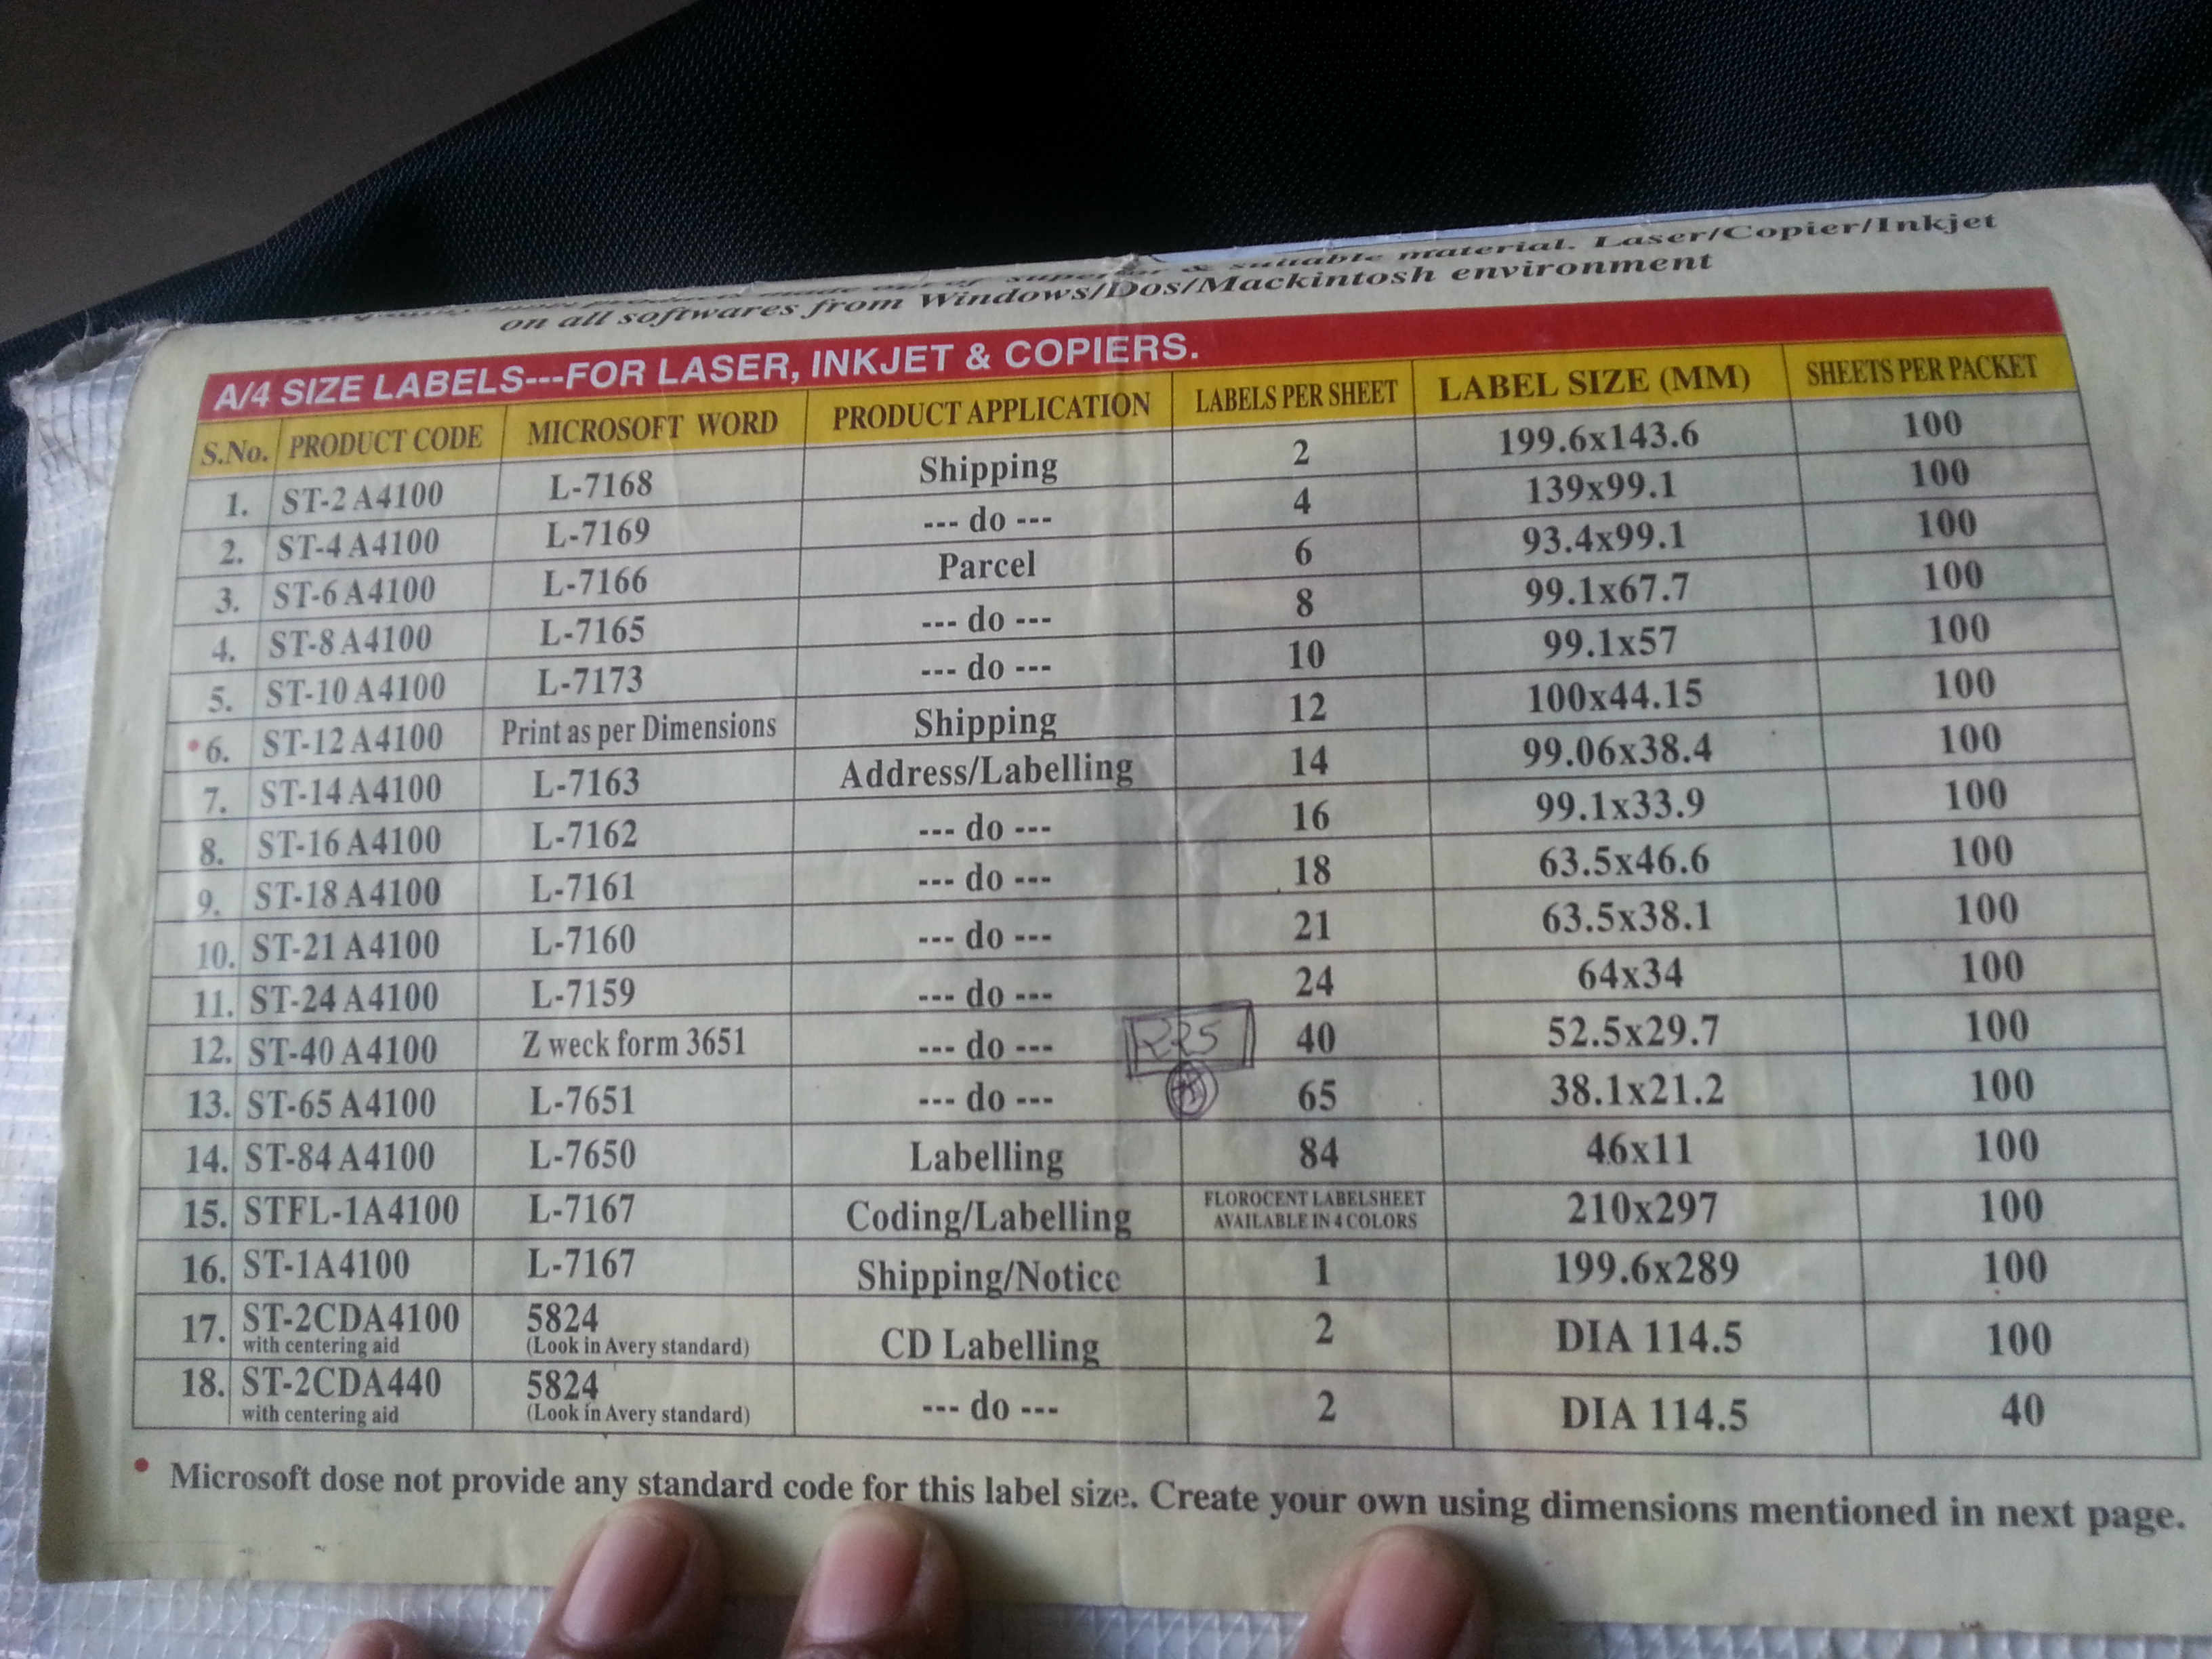 superior & suitable material. Laser/Copier/Inkjet
on all softwares from Windows/Dos/Mackintosh environment
A/4 SIZE LABELS---FOR LASER, INKJET & COPIERS.
S.No. PRODUCT CODE MICROSOFT WORD PRODUCT APPLICATION LABELS PER SHEET LABEL SIZE (MM) SHEETS PER PACKET
1. ST-2 A4100 L-7168 Shipping 2 199.6x143.6 100
2. ST-4 A4100 L-7169 --- do --- 4 139x99.1 100
3. ST-6 A4100 L-7166 Parcel 6 93.4x99.1 100
4. ST-8 A4100 L-7165 --- do --- 8 99.1x67.7 100
5. ST-10 A4100 L-7173 --- do --- 10 99.1x57 100
•6. ST-12 A4100 Print as per Dimensions Shipping 12 100x44.15 100
7. ST-14 A4100 L-7163 Address/Labelling 14 99.06x38.4 100
8. ST-16 A4100 L-7162 --- do --- 16 99.1x33.9 100
9. ST-18 A4100 L-7161 --- do --- 18 63.5x46.6 100
10. ST-21 A4100 L-7160 --- do --- 21 63.5x38.1 100
11. ST-24 A4100 L-7159 --- do --- 24 64x34 100
12. ST-40 A4100 Z weck form 3651 --- do --- 225 40 52.5x29.7 100
13. ST-65 A4100 L-7651 --- do --- 65 38.1x21.2 100
14. ST-84 A4100 L-7650 Labelling 84 46x11 100
15. STFL-1A4100 L-7167 Coding/Labelling FLOROCENT LABELSHEET 210x297 100
AVAILABLE IN 4 COLORS
16. ST-1A4100 L-7167 Shipping/Notice 1 199.6x289 100
17. ST-2CDA4100 5824 CD Labelling 2 DIA 114.5 100
with centering aid (Look in Avery standard)
18. ST-2CDA440 5824 --- do --- 2 DIA 114.5 40
with centering aid (Look in Avery standard)
• Microsoft dose not provide any standard code for this label size. Create your own using dimensions mentioned in next page.